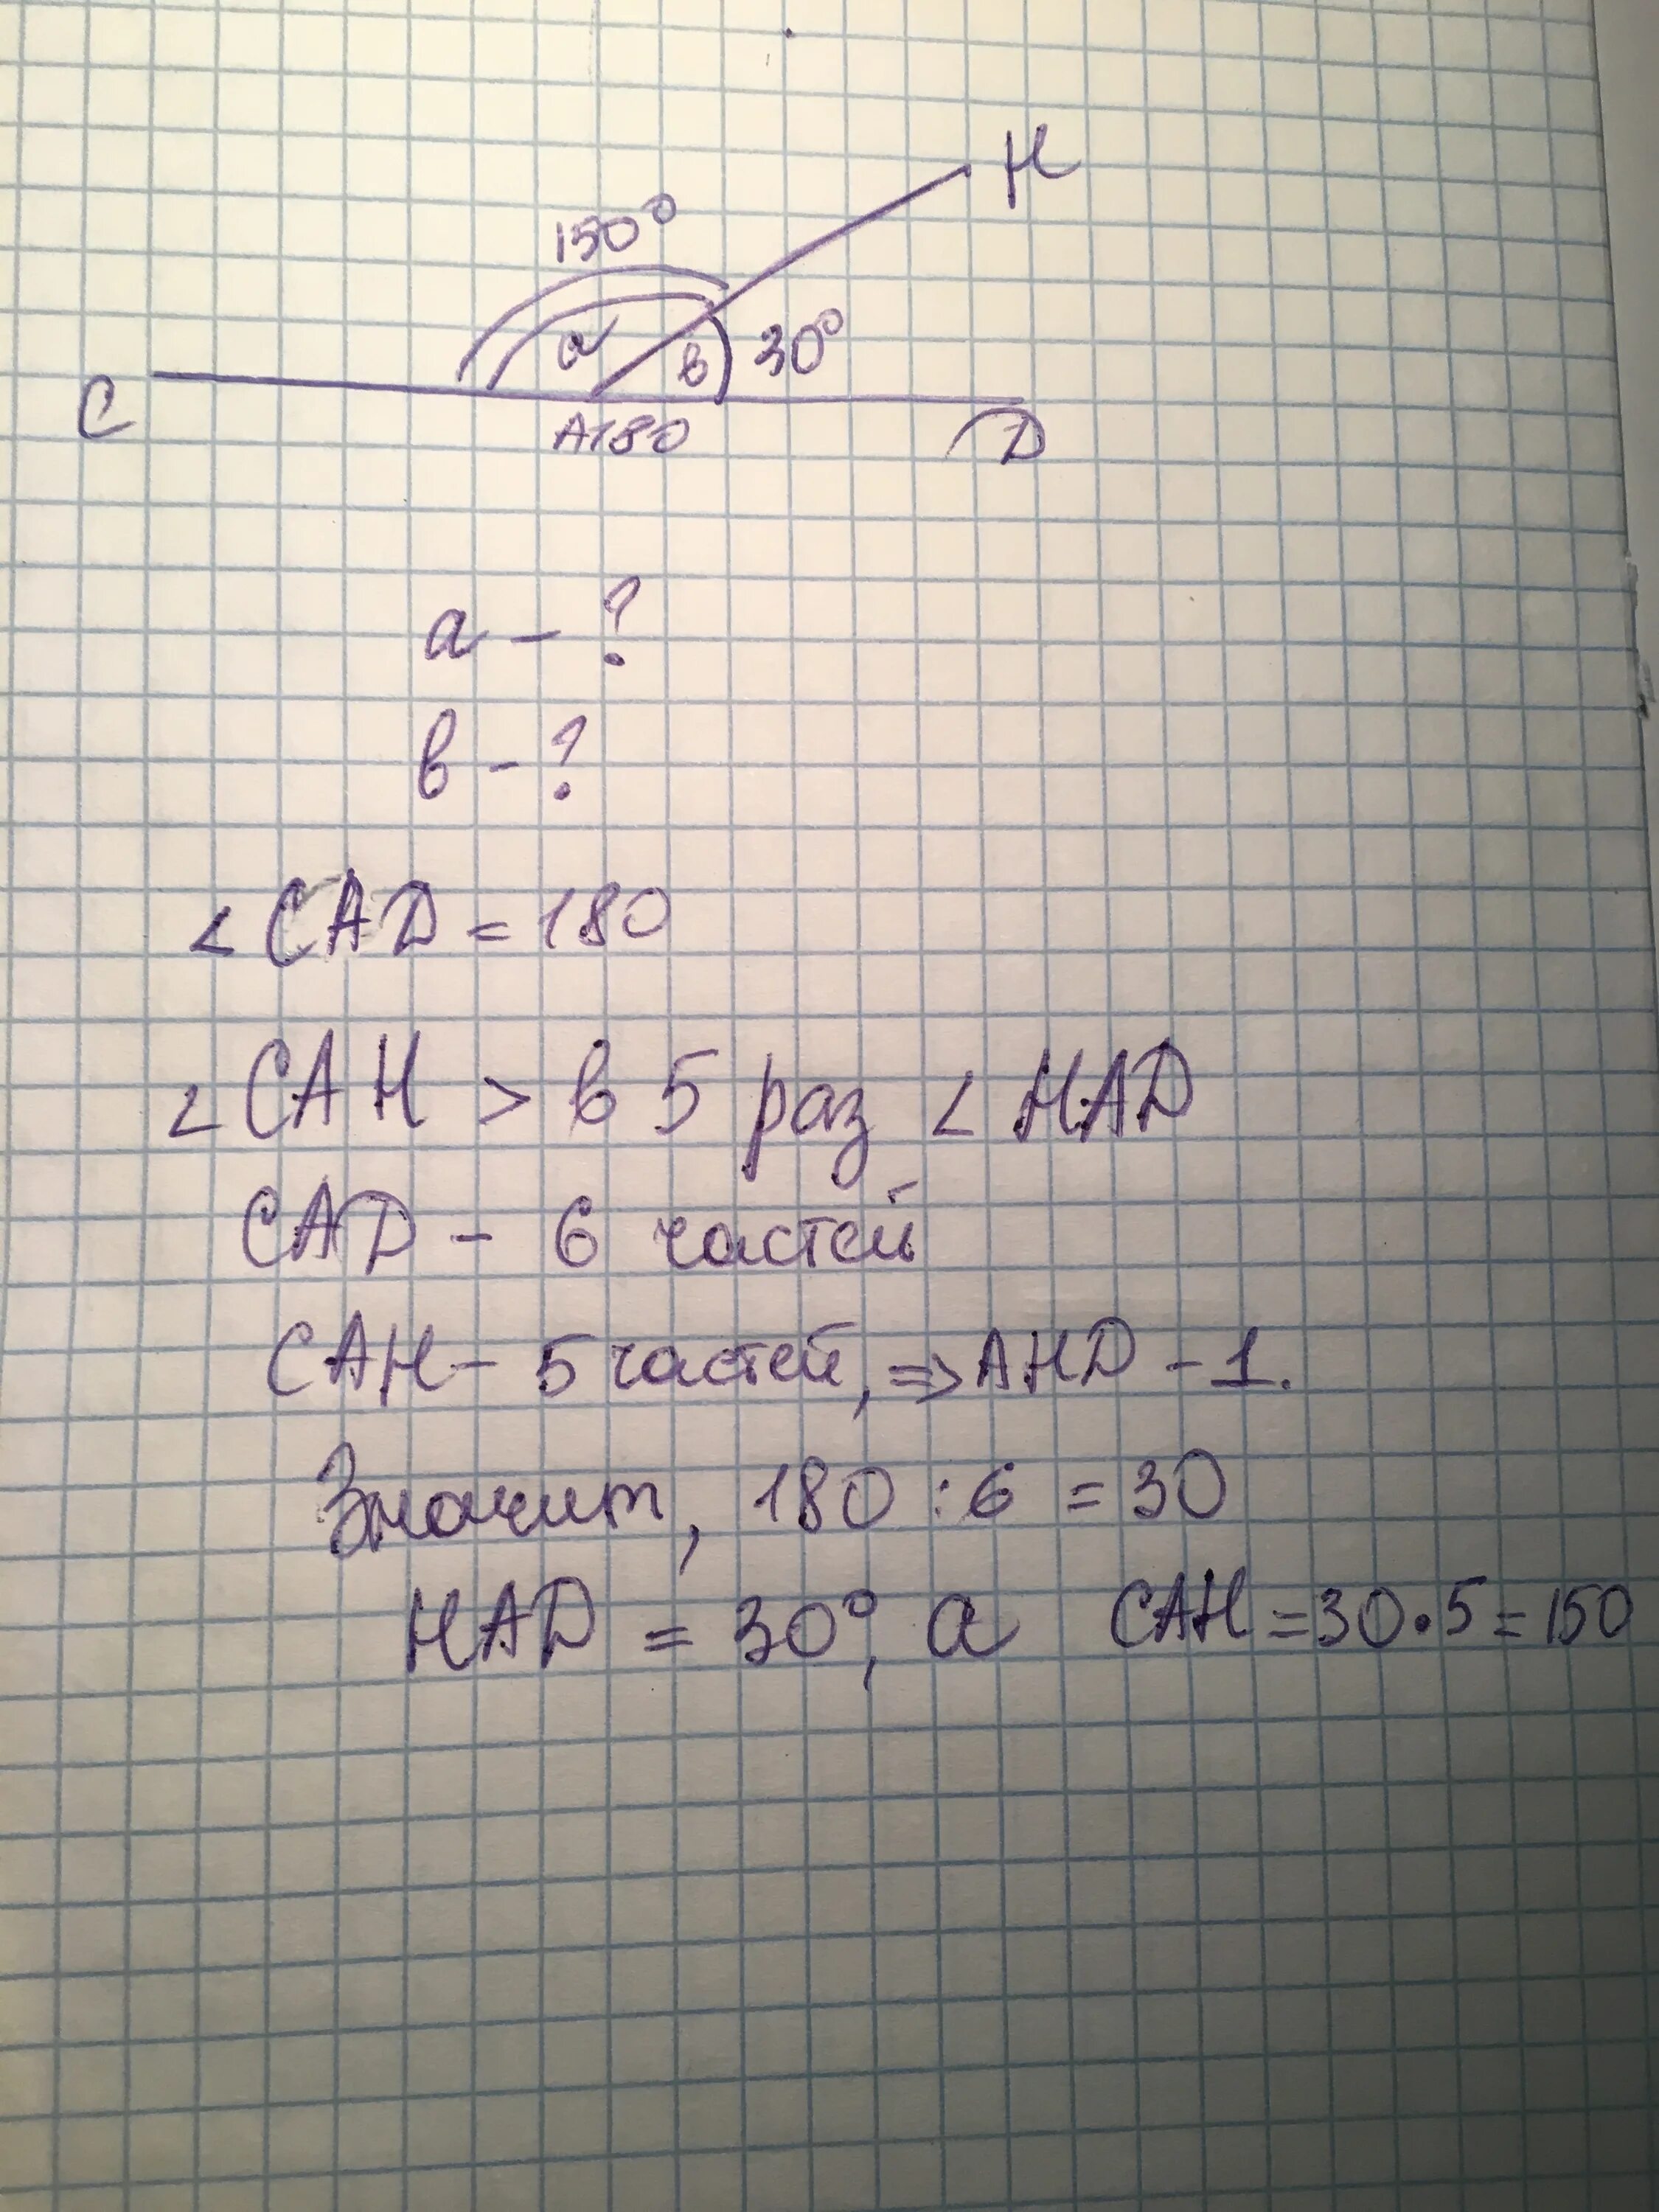 H
150°
a
в
30°
C
A180
D
а - ?
в - ?
<CAD = 180
<CAH > в 5 раз < HAD
CAD - 6 частей
CAH - 5 частей, => AHD - 1.
Значит, 180 : 6 = 30
HAD = 30°, а CAH = 30 • 5 = 150